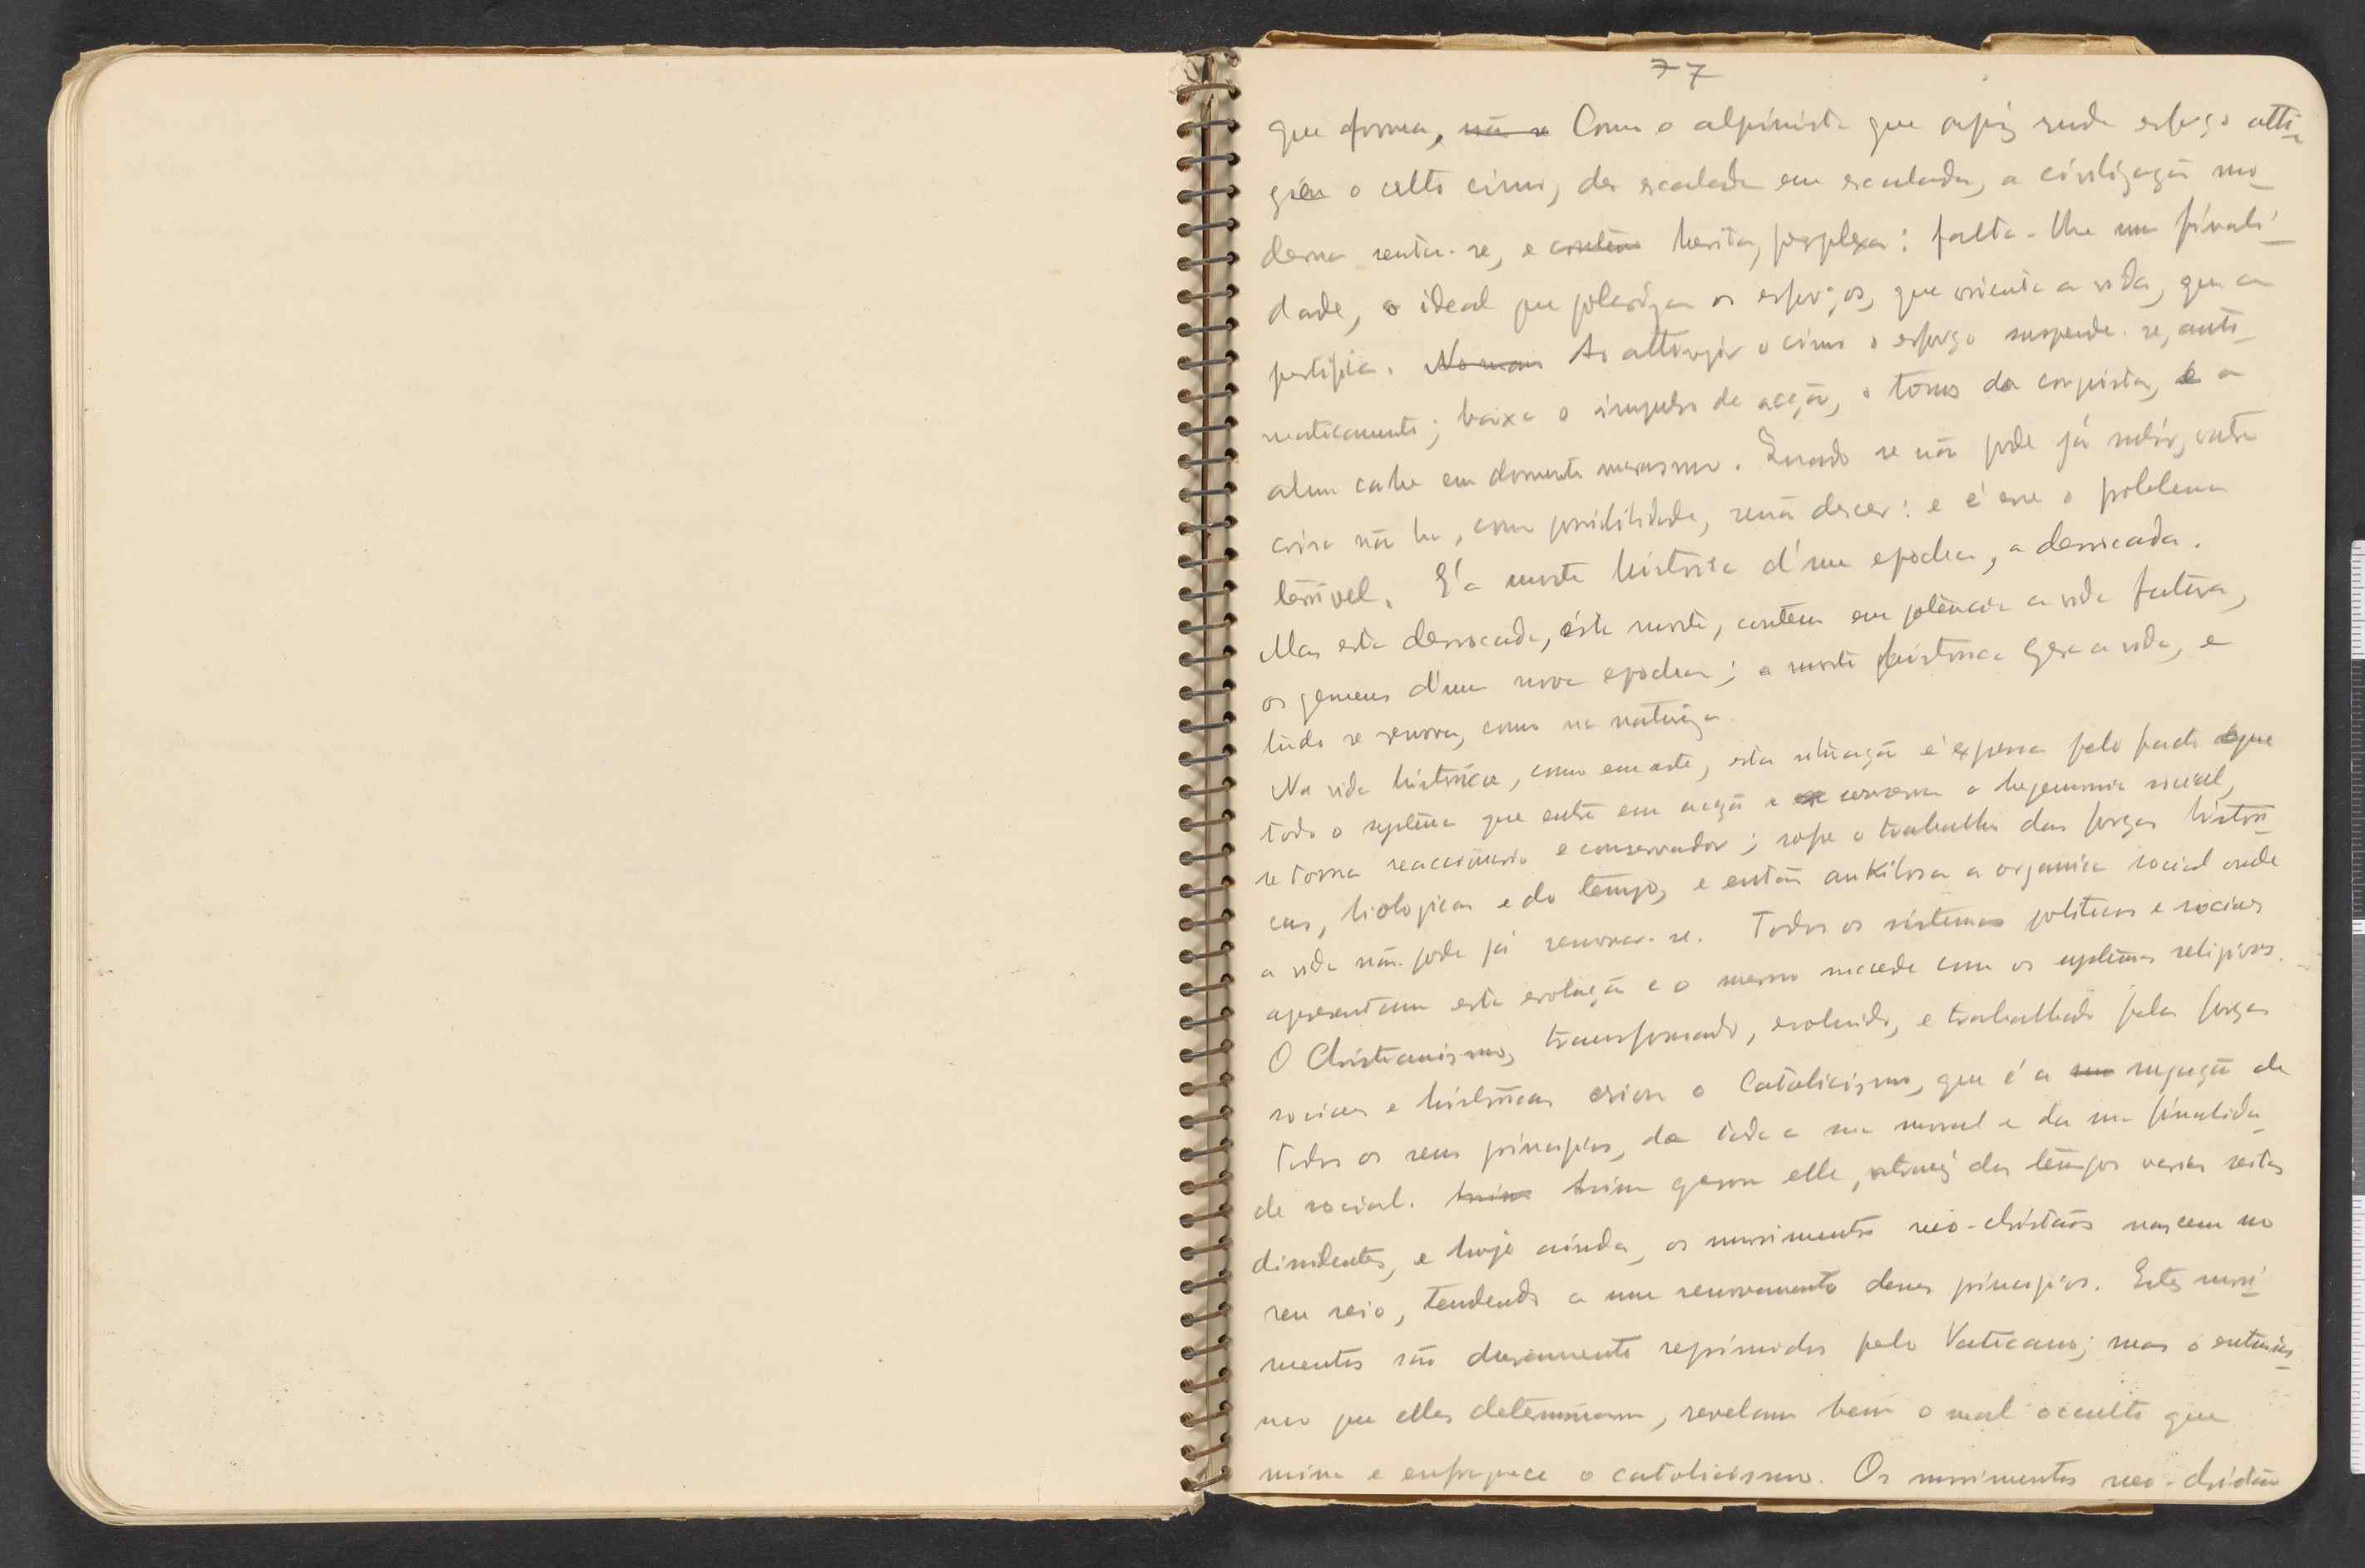 77
que forma, não se Como o alpinista que após rude esforço atti-
giu o alto cimo, de escalada em escalada, a civilização mo-
derna senta-se, e contem hesita, perplexa: falta-lhe um finali-
dade, o ideal que polariza os esforços, que orienta a vida, que a
justifica. No mais Ao attingir o cimo o esforço suspende-se, auto-
maticamente; baixa o impulso de acção, o tonus da conquista, e a
alma cahe em dormente marasmo. Quando se não pode já subir, outra
coisa não ha, como possibilidade, senão descer: e é esse o problema
terrivel. É a morte historica d'uma epocha, a derrocada.
Mas esta derrocada, ésta morte, contem em potência a vida futura,
os germens d'uma nova epocha; a morte historica gera a vida, e
tudo se renova, como na natureza.
Na vida histórica, como em arte, esta situação é expressa pelo facto de que
todo o systêma que entra em acção e conserva a hegemonia social,
se torna reaccionario e conservador; sofre o trabalho das forças históri-
cas, biologicas e do tempo, e então ankilosa a organica social onde
a vida não pode já renovar-se. Todos os sistemas politicos e sociaes
apresentam esta evolução e o mesmo succede com os systêmas religiosos.
O Christianismo, transformado, evoluido, e trabalhado pelas forças
sociaes e históricas criou o Catolicismo, que é a sua negação de
todos os seus principios, de toda a sua moral e da sua finalida-
de social. Assim Assim gerou elle, atravez dos tempos varias seitas
dissidentes, e hoje ainda, os movimentos neo-christãos nascem no
seu seio, tendendo a um renovamento desses principios. Estes movi-
mentos são duramente reprimidos pelo Vaticano; mas o entusias-
mo que elles determinam, revelam bem o mal occulto que
mina e enfraquece o catolicismo. Os movimentos neo-christãos